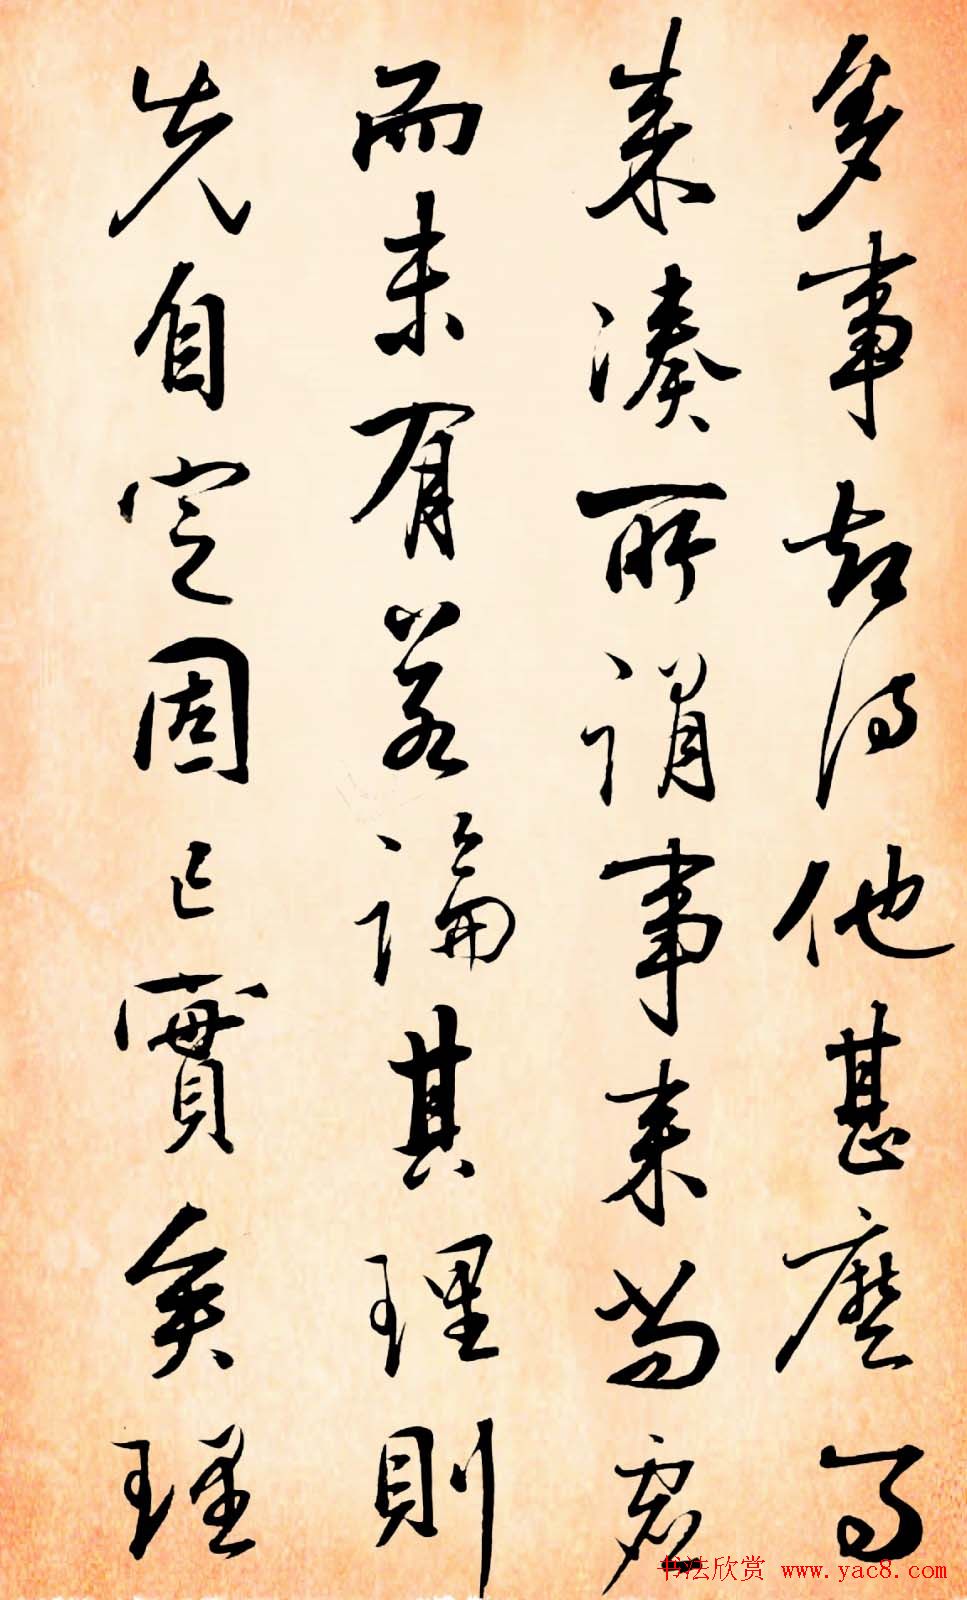 多事却待他甚麼事
来湊所謂事来尚虛
而未有若論其理則
先自定固已實矣理
书法欣赏 www.yac8.com